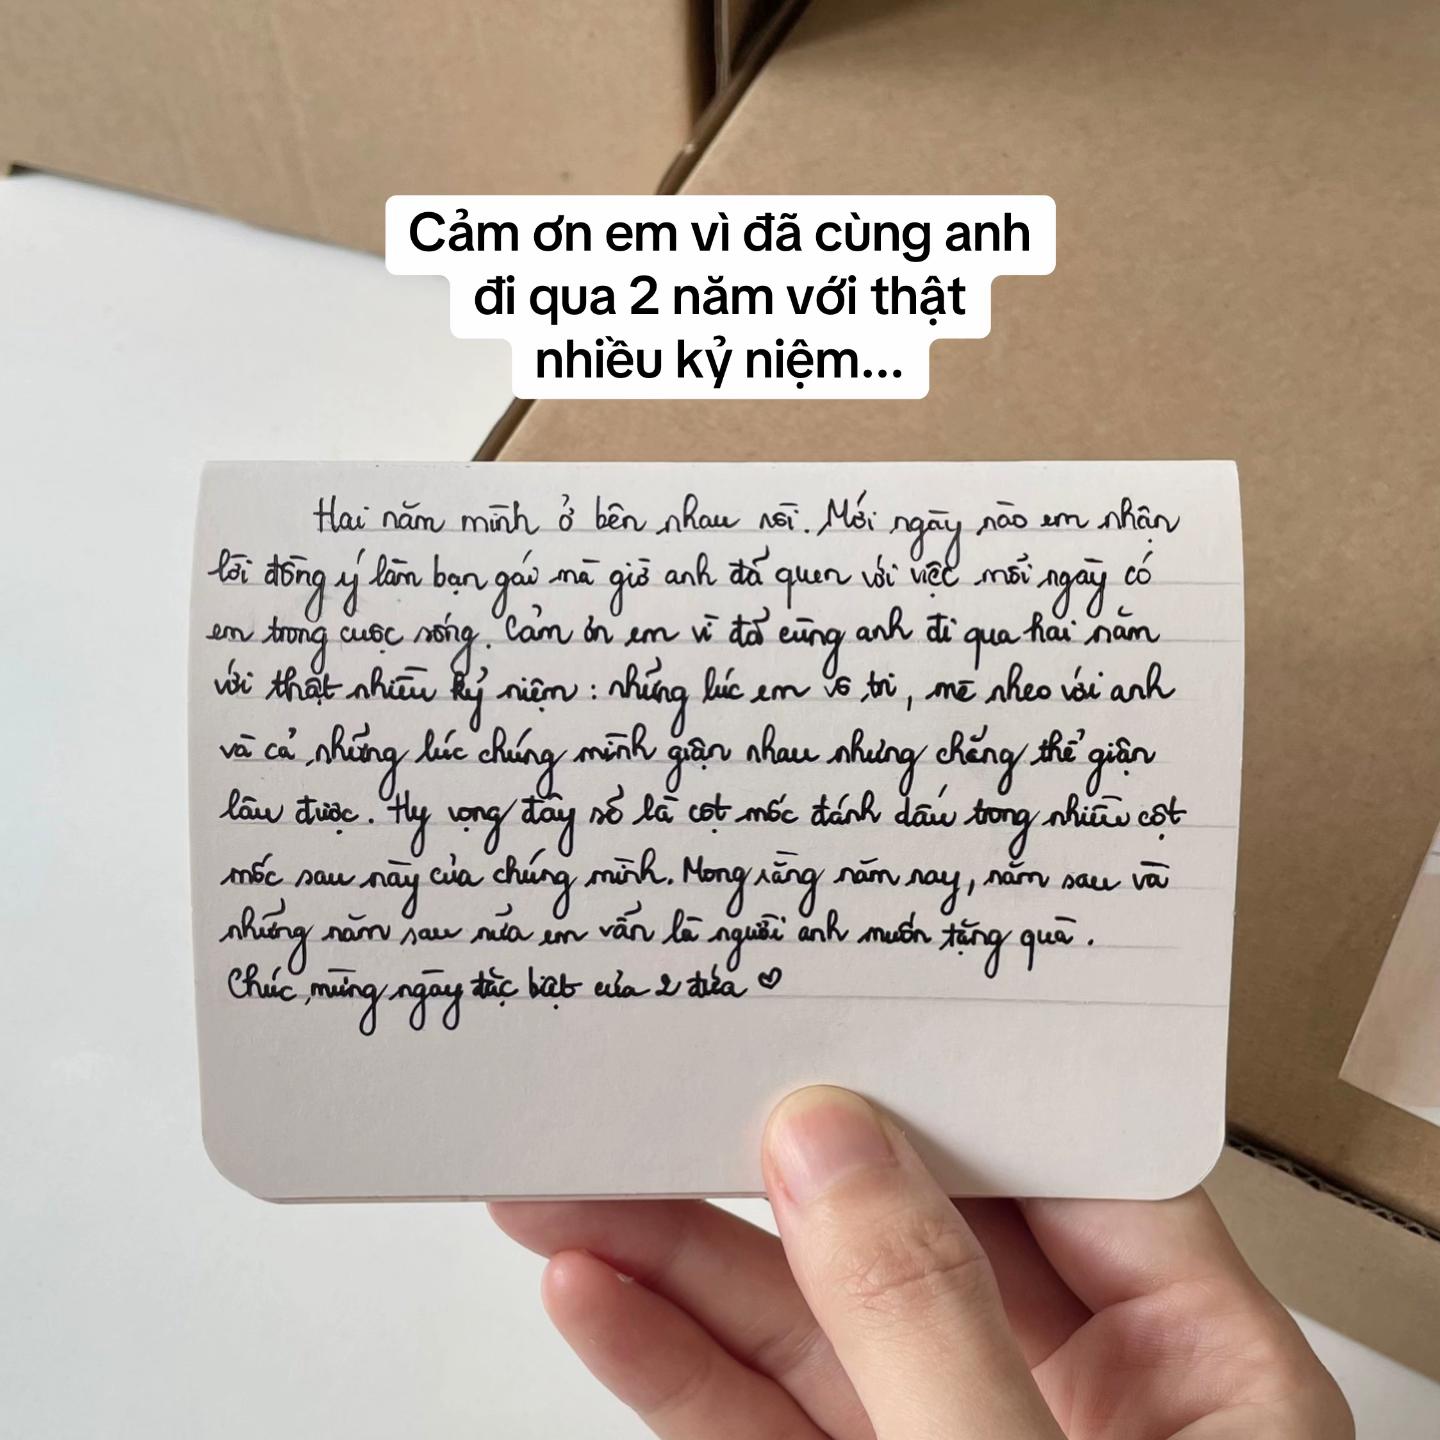 Cảm ơn em vì đã cùng anh
đi qua 2 năm với thật
nhiều kỷ niệm...
Hai năm mình ở bên nhau rồi. Mới ngày nào em nhận
lời đồng ý làm bạn gái mà giờ anh đã quen với việc mỗi ngày có
em trong cuộc sống. Cảm ơn em vì đã cùng anh đi qua hai năm
với thật nhiều kỷ niệm : những lúc em vô tri, mè nheo với anh
và cả những lúc chúng mình giận nhau nhưng chẳng thể giận
lâu được. Hy vọng đây sẽ là cột mốc đánh dấu trong nhiều cột
mốc sau này của chúng mình. Mong rằng năm nay, năm sau và
những năm sau nữa em vẫn là người anh muốn tặng quà.
Chúc mừng ngày đặc biệt của 2 đứa ♡